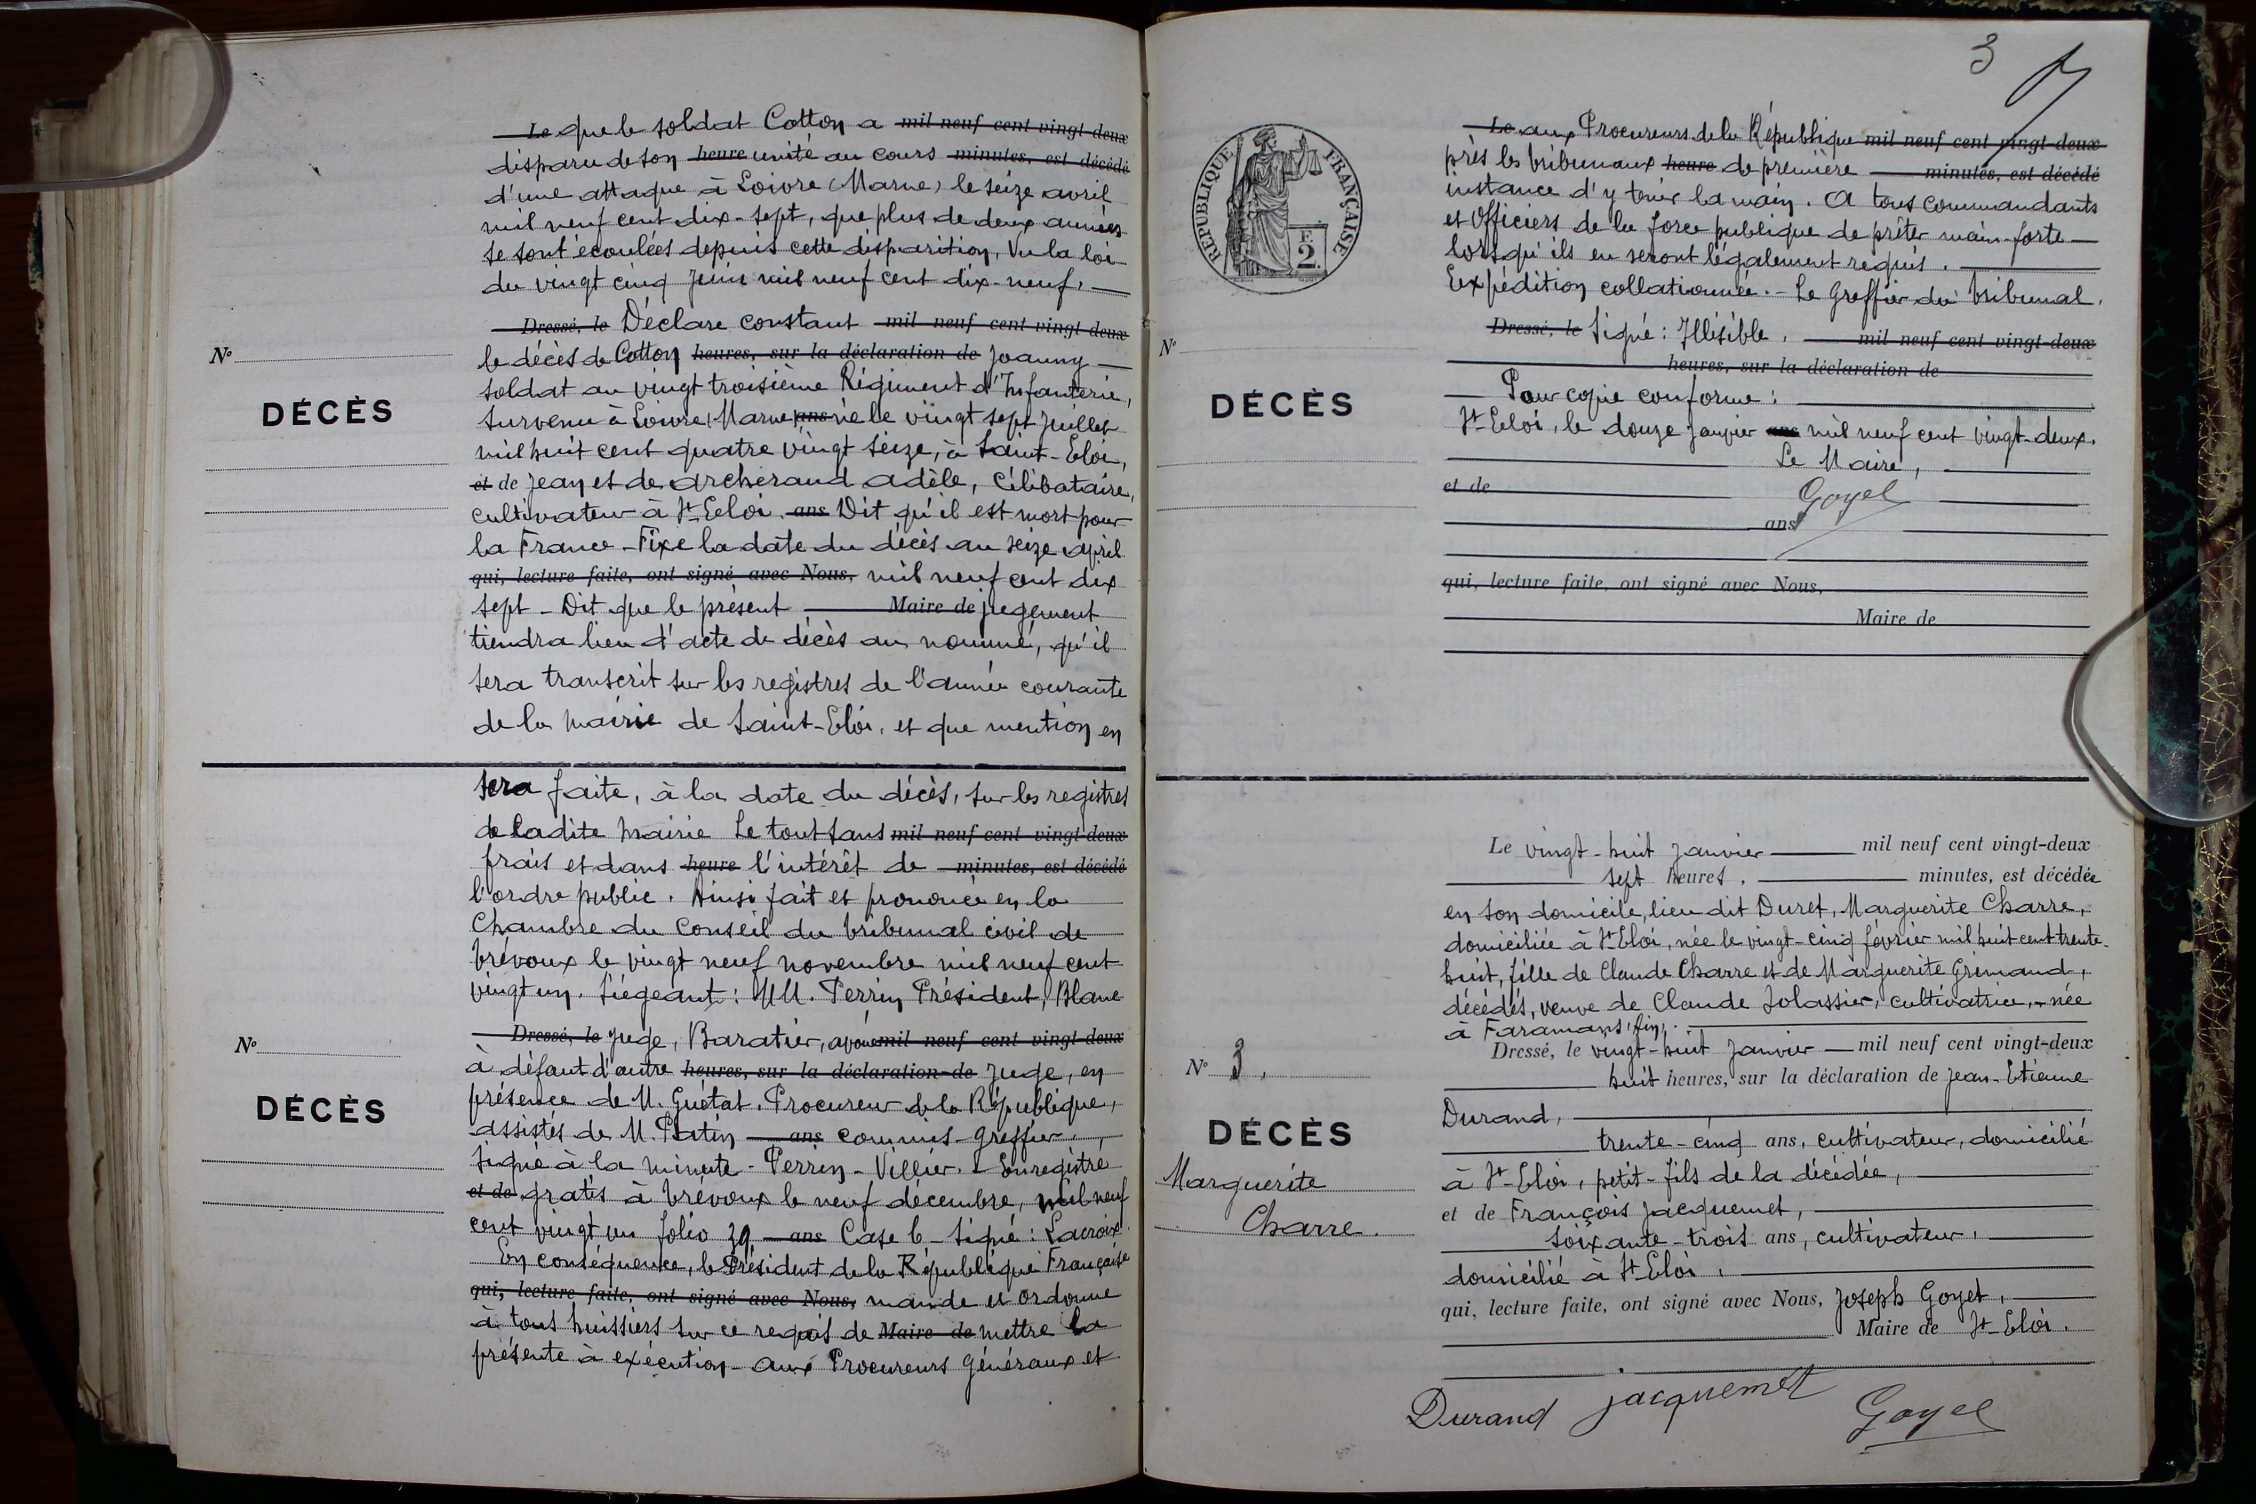 Le que le soldat Cotton a mil neuf cent vingt-deux
disparu de son heure unité au cours minutes, est décédé
d'une attaque à Loivre (Marne) le seize avril
mil neuf cent dix-sept, que plus de deux années
se sont écoulées depuis cette disparition, Vu la loi
du vingt cinq juin mil neuf cent dix-neuf,
Dressé, le Déclare constant mil neuf cent vingt-deux
le décès de Cotton heures, sur la déclaration de Joanny
soldat au vingt troisième Régiment d'Infanterie,
survenu à Loivre (Marne) ans né le vingt sept juillet
mil huit cent quatre vingt seize, à Saint-Eloi,
et de Jean et de Archeraud Adèle, célibataire,
cultivateur à St Eeloi. ans Dit qu'il est mort pour
la France - Fixe la date du décès au seize avril
qui, lecture faite, ont signé avec Nous, mil neuf cent dix
sept - Dit que le présent Maire de jugement
tiendra lieu d'acte de décès au nommé, qu'il
sera transcrit sur les registres de l'année courante
de la mairie de Saint-Eloi, et que mention en
No
DÉCÈS
sera faite, à la date du décès, sur les registres
de ladite mairie Le tout sans mil neuf cent vingt-deux
frais et dans heure l'intérêt de minutes, est décédé
l'ordre public. Ainsi fait et prononcé en la
Chambre du Conseil du tribunal civil de
Trévoux le vingt neuf novembre mil neuf cent
vingt un. Siégeant: MM. Perrin Président, Blanc
Dressé, le juge, Baratier, avoué mil neuf cent vingt-deux
à défaut d'autre heures, sur la déclaration de juge, en
présence de M. Guétat, Procureur de la République,
assistés de M. Platin ans commis-greffier,
Signé à la minute - Perrin - Villier. - Enregistré
et de gratis à Trévoux le neuf décembre, mil neuf
cent vingt un folio 39 ans Case 6 - signé: Lacroix.
En conséquence, le Président de la République Française
qui, lecture faite, ont signé avec Nous, mande et ordonne
à tous huissiers sur ce requis de Maire de mettre la
présente à exécution - aux Procureurs Généraux et
No
DÉCÈS
3
RÉPUBLIQUE FRANÇAISE
F.
2
Le aux Procureurs de la République mil neuf cent vingt-deux
près les tribunaux heure de première minutes, est décédé
instance d'y tenir la main. A tous commandants
et Officiers de la force publique de prêter main-forte
lorsqu'ils en seront légalement requis.
Expédition collationnée. - Le Greffier du tribunal.
Dressé, le Signé: Illisible. mil neuf cent vingt-deux
heures, sur la déclaration de
Pour copie conforme:
St Eeloi, le douze janvier ans mil neuf cent vingt-deux.
Le Maire,
et de Goyet
ans
qui, lecture faite, ont signé avec Nous,
Maire de
No
DÉCÈS
Le vingt-huit janvier mil neuf cent vingt-deux
sept heures, minutes, est décédée
en son domicile, lieu dit Duret, Marguerite Charre,
domiciliée à St Eloi, née le vingt-cinq février mil huit cent trente-
huit, fille de Claude Charre et de Marguerite Grimaud,
décédés, veuve de Claude Jolassier, cultivatrice, née
à Faramans, Ain.
Dressé, le vingt-huit janvier mil neuf cent vingt-deux
huit heures, sur la déclaration de Jean-Etienne
Durand,
trente-cinq ans, cultivateur, domicilié
à St-Eloi, petit-fils de la décédée,
et de François Jacquemet,
soixante-trois ans, cultivateur,
domicilié à St Eloi,
qui, lecture faite, ont signé avec Nous, Joseph Goyet,
Maire de St-Eloi.
No 3,
DÉCÈS
Marguerite
Charre.
Durand Jacquemet Goyet